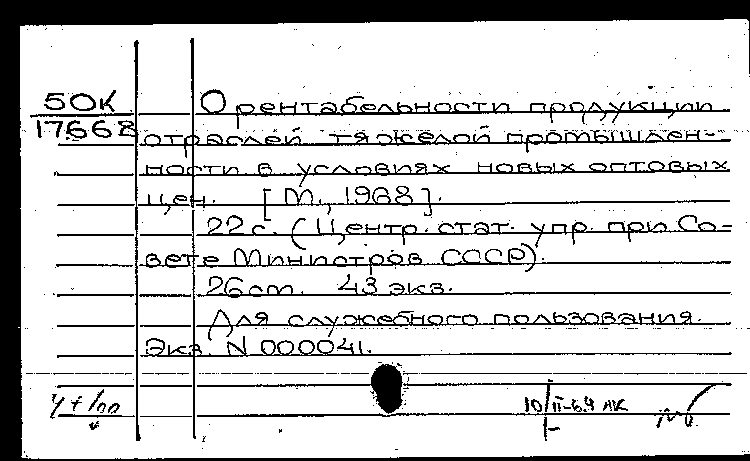 50К
17668
О рентабельности продукции
отраслей тяжёлой промышлен-
ности в условиях новых оптовых
цен. [М., 1968].
22с. (Центр. стат. упр. при Со-
вете Министров СССР).
26см. 43 экз.
Для служебного пользования.
Экз. N 000041.